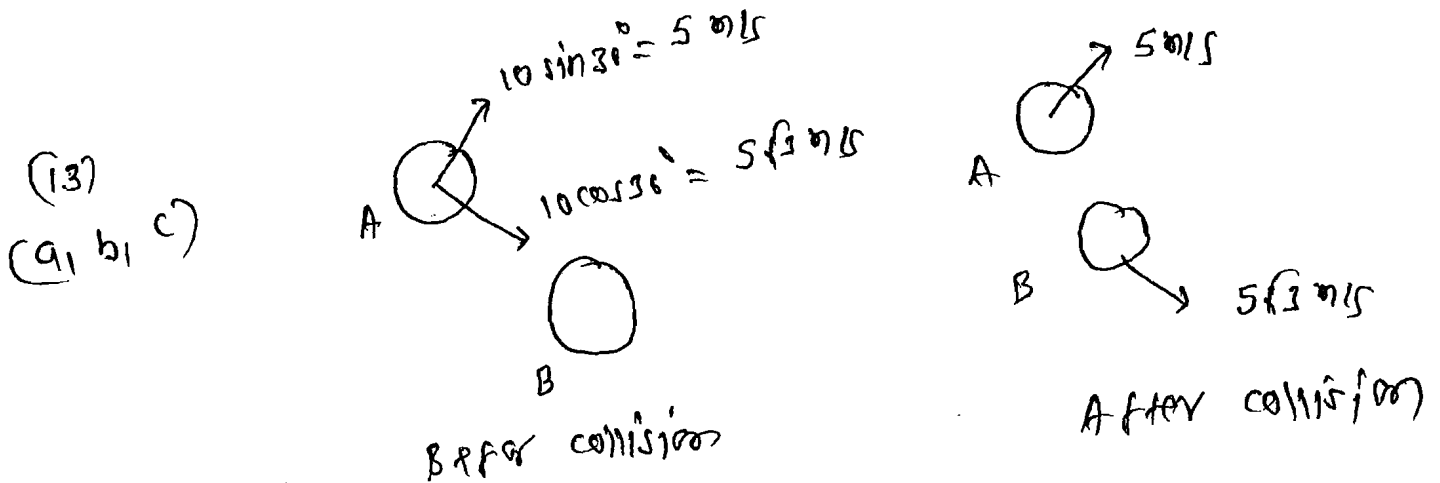 (13)
(a, b, c)
10 sin30° = 5 m/s
10 cos30° = 5√3 m/s
A
B
Before collision
5 m/s
A
B
5√3 m/s
After collision